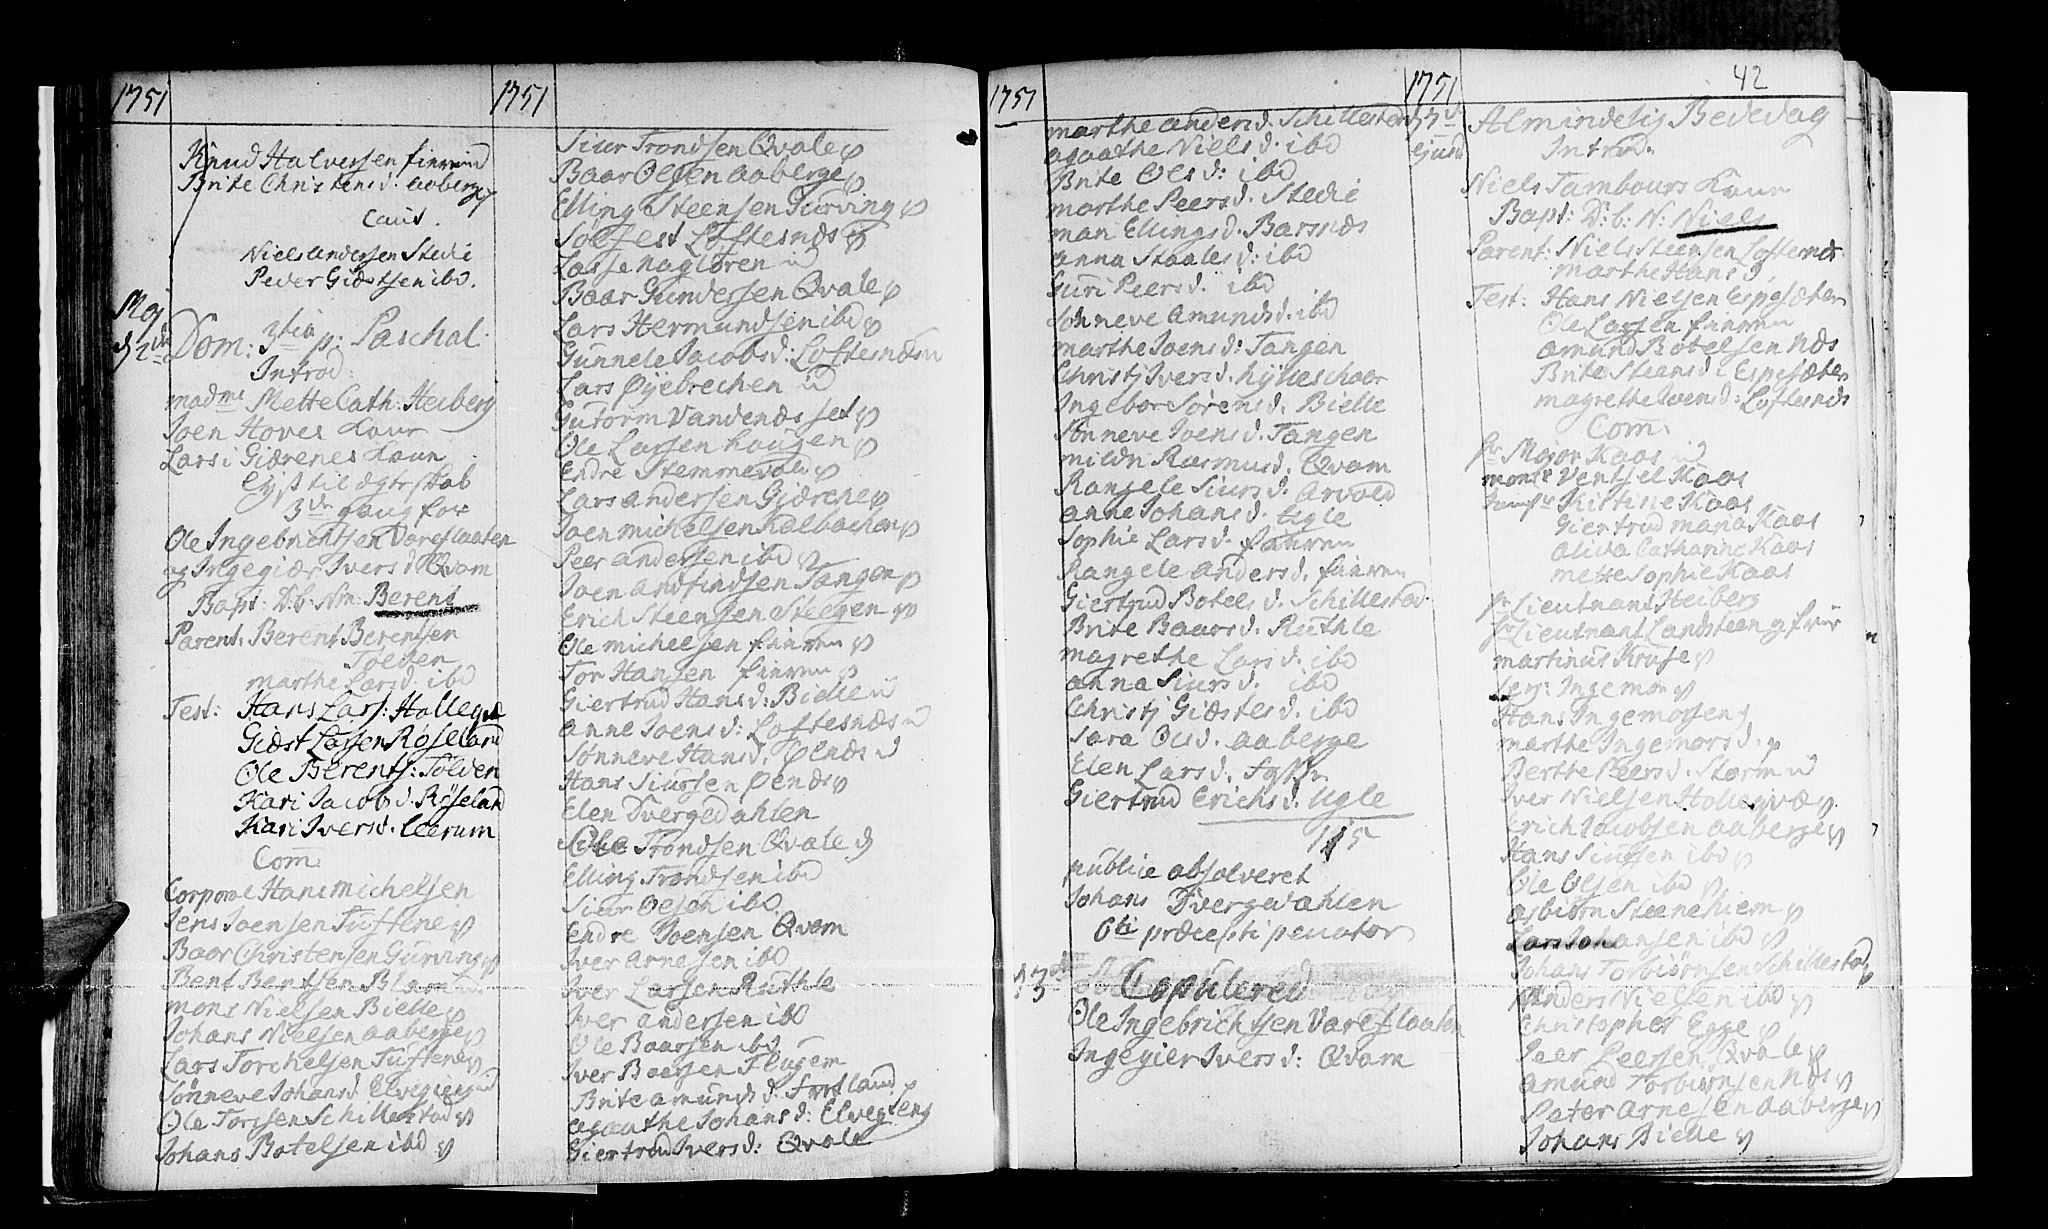 1751
Knud Halversen finven
Brite Christensd. aaberge
Caut.
Niels anderssen Stedie
Peder Giestsen ibd.
Maj
d 2den
Dom: 3tia p: Paschal:
Introd:
madme Mette Cath. Heiberg
Joen Hoves Kaun
Lars i Giærenes Kaun
Lyst til ægteskab
3de gang for
Ole Ingebrichtsen Vareflaaten
og Ingegiær Ivers d. Qvam
Bapt: D. b. Nm: Berent
Parent: Berent Berentsen
Tolden
marthe Larsd. ibd
Test: Hans Lars: Hollegvæ
Giæst Lassen Røseland
Ole Berents: Tolden
Kari Jacobs d. Røseland
Kari Ivers d. Leerum
Com
Corporal Hans michelsen
Jens Joensen Tuftene
Baar Christensen Gurving
Bent Bentsen
mons Nielsen Bielle
Johans Nielsen aaberge
Lars Torchelsen Tuftene
Sønneve Johansd. Elvegieng
Ole Torssen Schillestad
Johans Botelsen ibd
1751
Siur Trondsen Qvale
Baar Olsen aaberge
Elling Steensen Gurving
Solfest Loftesnæs
Lasse nagloren
Baar Gundersen Qvale
Lars Hermundsen ibd
Gunnele Jacobs d: Loftesnæs
Lars Øyebrechen
Gutorm Vandenæs
Ole Larssen haugen
Endre Stemmevold
Lars anderssen Giærene
Joen michelsen Kalbachen
Peer andersen ibd
Joen andfindsen Tangen
Erich Steensen Steegen
Ole michelsen finven
Tor Hansen finven
Giertrud Hans d: Bielle
anne Joens d: Loftesnæs
Sønneve Hans d. Øenæs
Hans Siursen Øenæs
Elen Dvergedahlen
Ole Trondsen Qvale
Elling Trondsen ibd
Siur Olsen ibd
Endre Joensen Qvam
Iver arnesen ibd
Iver Larsen Ruthle
Iver andersen ibd
Ole Baarsen ibd
Iver Baarsen Flugem
Brite amunds d. Fortland
agaathe Johans d. Elvegieng
Giertrud Ivers d: Qvale
1751
marthe anders d. Schillestad
agaathe Niels d. ibd
Brite Ols d: ibd
marthe Peers d. Stedie
mari Ellings d. Barsnæs
anna Staales d: ibd
Guri Peers d. ibd
Sønneve amunds d. ibd
marthe Joens d: Tangen
Christj Ivers d. hylleschaar
Ingebor Sørens d. Bielle
Sønneve Joens d. Tangen
mildri Rasmus d. Qvam
Rangele Siurs d. Arvold
anne Johans d. Ugle
Sophie Lars d. finven
Rangele anders d. finven
Giertrud Botels d. Schillestad
Brite Baars d. Ruthle
magrethe Lars d. ibd
anna Siurs d. ibd
Christj Giæstes d. ibd
Sara Ols d. aaberge
Elen Lars d.
Giertrud Erichs d. Ugle
115
publice absolveret
Johans Dvergedahlen
6ti præcepti peccator
d 3die Copulered
Ole Ingebrichtsen Vareflaaten
Ingegier Ivers d: Qvam
1751
42
Almindelig Bededag
Introd.
Niels Tambours Kaun
Bapt: D: b: N: Niels
Parent: Niels Steensen Loftesnæs
marthe Hans d.
Test: Hans Nielsen Espesæter
Ole Larsen finven
amund Botelsen Næs
Brite Steens d: Espesæter
magrethe Joens d: Loftesnæs
Com
hr Major Kaas
monsr Ventsel Kaas
Jumfr Kistine Kaas
Giertrud maria Kaas
Oliva Catharine Kaas
mette Sophie Kaas
hr Lieutnant Heiberg
hr Lieutnant Landsteen og frue
martinus Kruse
Jens: Ingemor
Hans Ingemorssen
marthe Ingemors d.
Berthe Peers d. Storm
Iver Nielsen Hollegvæ
Erich Jacobsen aaberge
Hans Siursen ibd
Ole Olsen ibd
asbiørn Steenehiem
Lars Johansen ibd
Johans Torbiørnsen Schillestad
Anders Nielsen ibd
Christopher Egge
Peer Leersen Qvale
amund Torbiørnsen Næs
Peter Arnesen aaberge
Johans Bielle